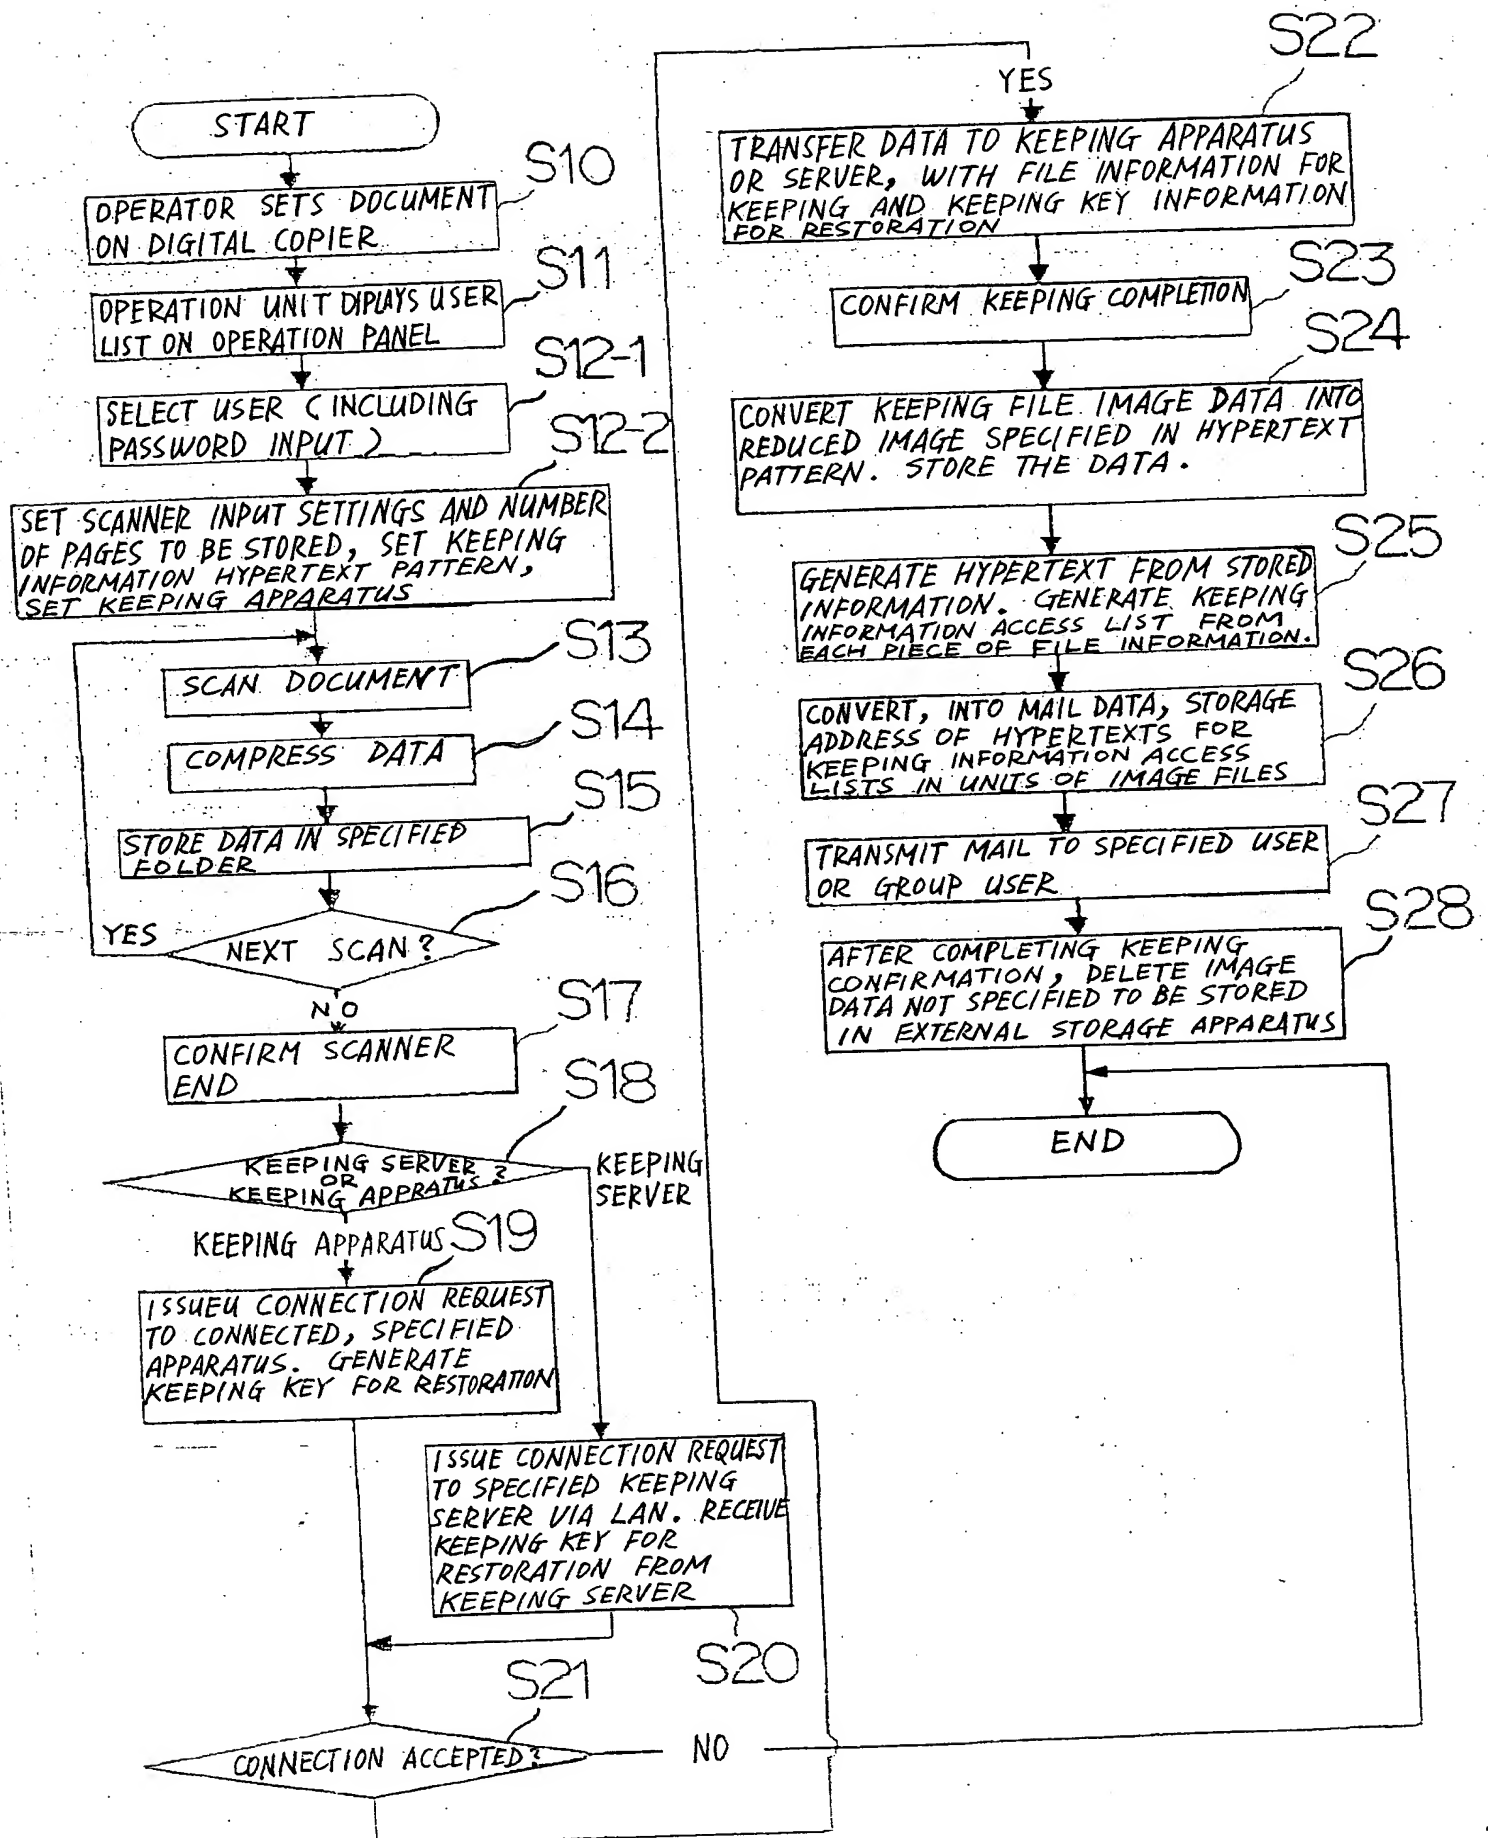 START
S10
OPERATOR SETS DOCUMENT
ON DIGITAL COPIER
S11
OPERATION UNIT DIPLAYS USER
LIST ON OPERATION PANEL
S12-1
SELECT USER (INCLUDING
PASSWORD INPUT)
S12-2
SET SCANNER INPUT SETTINGS AND NUMBER
OF PAGES TO BE STORED, SET KEEPING
INFORMATION HYPERTEXT PATTERN,
SET KEEPING APPARATUS
S13
SCAN DOCUMENT
S14
COMPRESS DATA
S15
STORE DATA IN SPECIFIED
FOLDER
S16
YES
NEXT SCAN?
NO
S17
CONFIRM SCANNER
END
S18
KEEPING SERVER
OR
KEEPING APPRATUS?
KEEPING
SERVER
KEEPING APPARATUS
S19
ISSUEU CONNECTION REQUEST
TO CONNECTED, SPECIFIED
APPARATUS. GENERATE
KEEPING KEY FOR RESTORATION
ISSUE CONNECTION REQUEST
TO SPECIFIED KEEPING
SERVER VIA LAN. RECEIVE
KEEPING KEY FOR
RESTORATION FROM
KEEPING SERVER
S20
S21
CONNECTION ACCEPTED?
NO
YES
S22
TRANSFER DATA TO KEEPING APPARATUS
OR SERVER, WITH FILE INFORMATION FOR
KEEPING AND KEEPING KEY INFORMATION
FOR RESTORATION
S23
CONFIRM KEEPING COMPLETION
S24
CONVERT KEEPING FILE IMAGE DATA INTO
REDUCED IMAGE SPECIFIED IN HYPERTEXT
PATTERN. STORE THE DATA.
S25
GENERATE HYPERTEXT FROM STORED
INFORMATION. GENERATE KEEPING
INFORMATION ACCESS LIST FROM
EACH PIECE OF FILE INFORMATION.
S26
CONVERT, INTO MAIL DATA, STORAGE
ADDRESS OF HYPERTEXTS FOR
KEEPING INFORMATION ACCESS
LISTS IN UNITS OF IMAGE FILES
S27
TRANSMIT MAIL TO SPECIFIED USER
OR GROUP USER
S28
AFTER COMPLETING KEEPING
CONFIRMATION, DELETE IMAGE
DATA NOT SPECIFIED TO BE STORED
IN EXTERNAL STORAGE APPARATUS
END